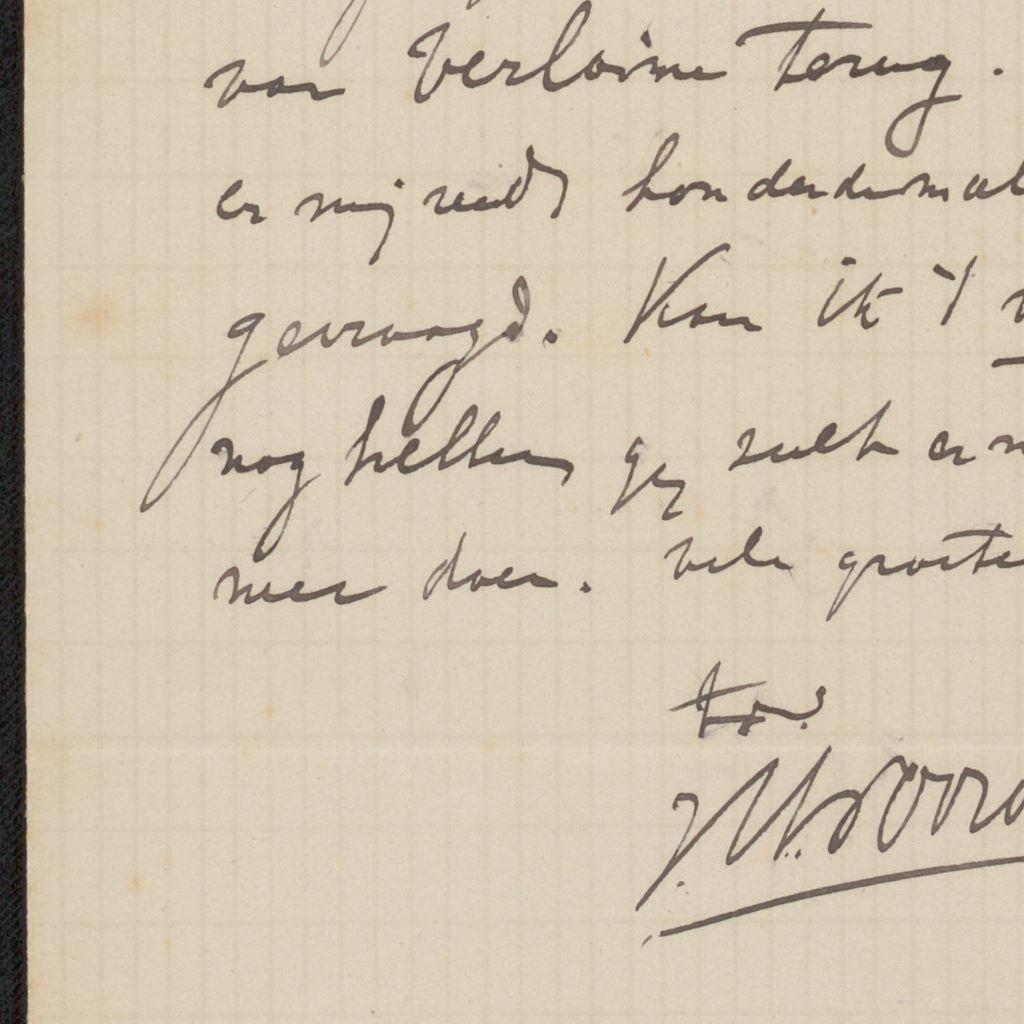 van Verlaine terug.
er mij reeds honderdemal
gevraagd. Kan ik 't
nog hebben gij zult er m
mee doen. vele groete
t.à.v.